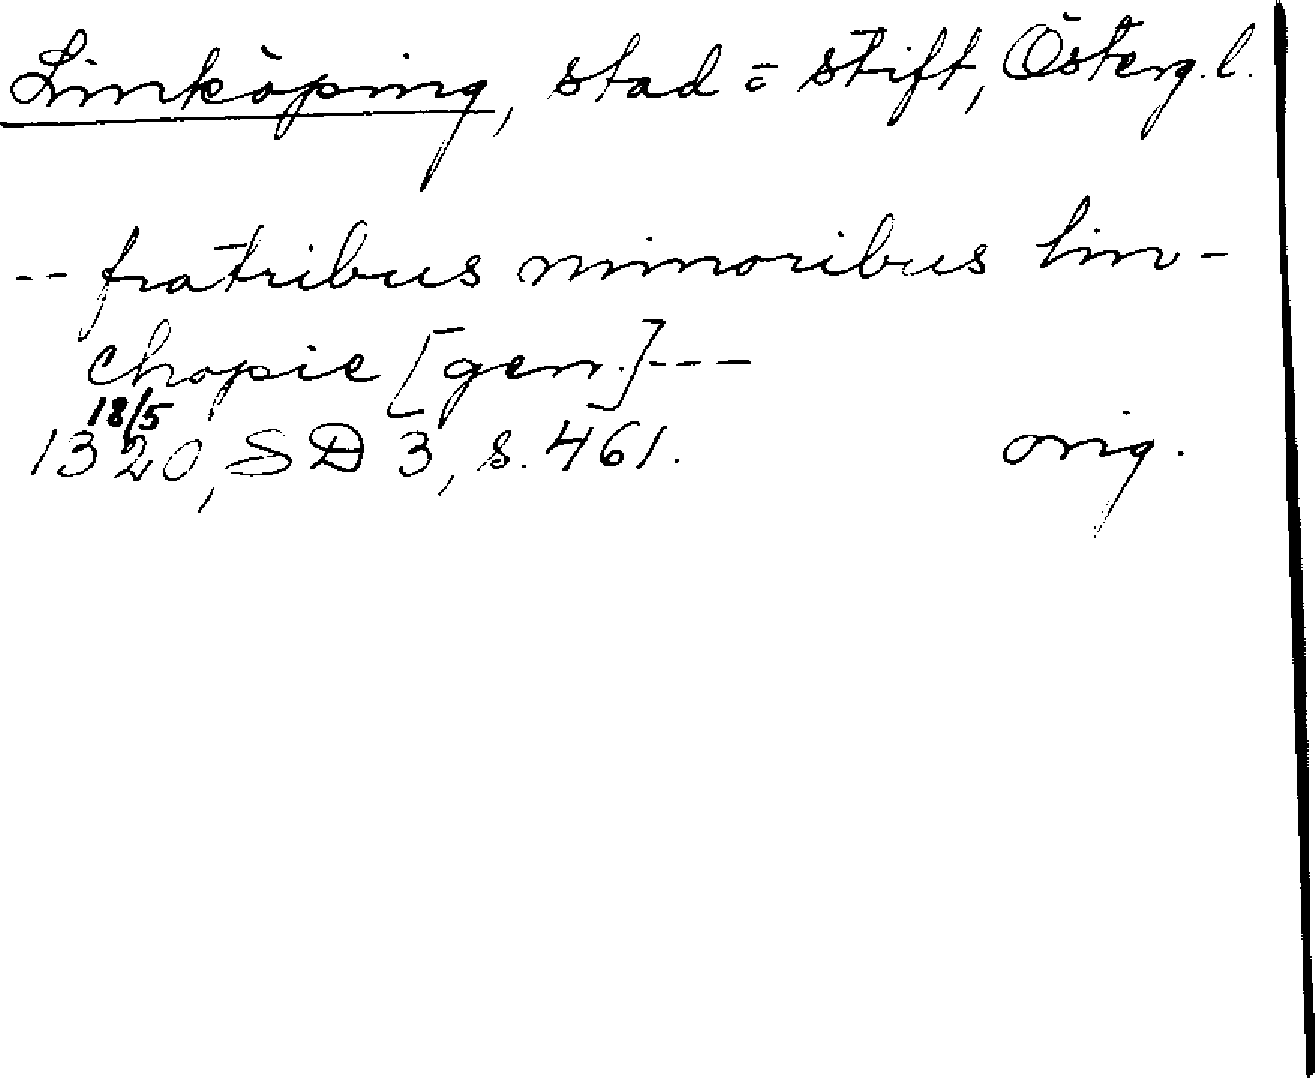 Linköping, stad o stift, Österg.l.
-- fratribus minoribus lin-
chopie [gen.]---
18/5
1320, SD 3, s. 461. orig.